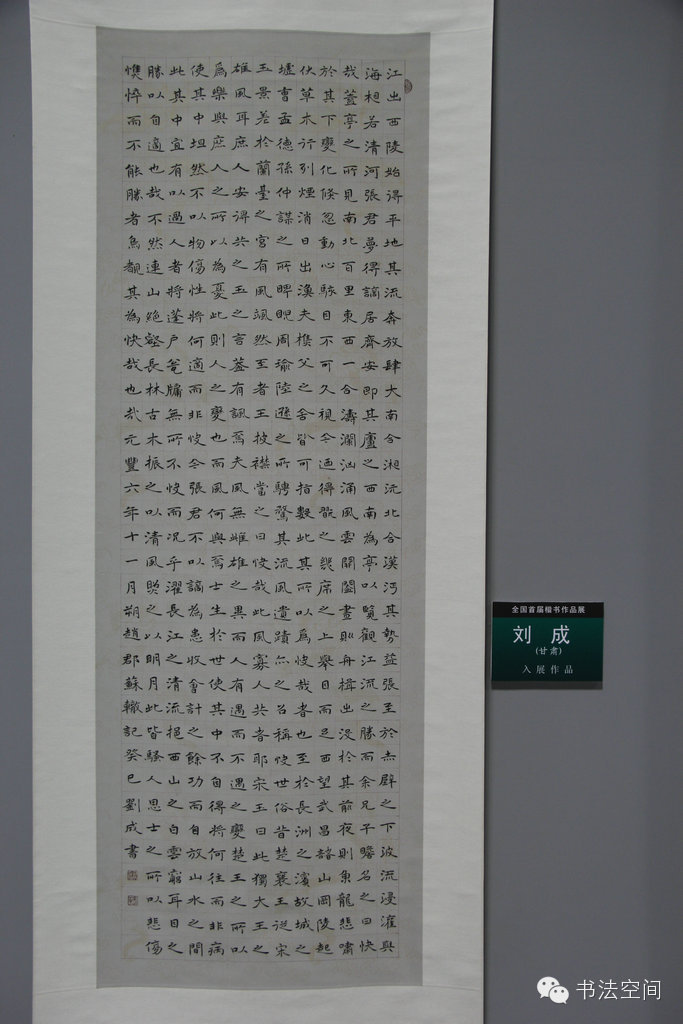 江出西陵始得平地其流奔放肆大南合湘沅北合漢沔其勢益張至於赤壁之下波流浸灌與
海相若清河張君夢得謫居齊安即其廬之西南為亭以覽觀江流之勝而余兄子瞻名之曰快
哉蓋亭之所見南北百里東西一合濤瀾洶涌風雲開闔晝則舟楫出沒於其前夜則魚龍悲嘯
於其下變化倏忽動心駭目不可久視今迺得翫之几席之上舉目而足西望武昌諸山岡陵起
伏草木行列煙消日出漁夫樵父之舍皆可指數此其所以為快哉者也至於長洲之濱故城之
墟曹孟德孫仲謀之所睥睨周瑜陸遜之所騁騖其流風遺蹟亦足以稱快世俗昔楚襄王從宋
玉景差於蘭臺之宮有風颯然至者王披襟當之曰快哉此風寡人共者耶宋玉曰此獨大王之
雄風耳庶人安得共之玉之言蓋有諷焉夫風無雌雄之異而人有遇而不遇之變楚王之所以
為樂與庶人之所以為憂此則人之變也而風何與焉士生於世使其中不自得將何往而非病
使其中坦然不以物傷性將何適而非快今張君不以謫為患收會計之餘功而自放山水之間
此其中宜有以過人者將蓬戶甕牖無所不快而況乎濯長江之清流挹西山之白雲窮耳目之
勝以自適也哉不然連山絕壑長林古木振之以清風照之以明月此皆騷人思士之所以悲傷
憔悴而不能勝者烏覩其為快哉也哉元豐六年十一月朔趙郡蘇轍記癸巳劉成書
全国首届楷书作品展
刘成
(甘肃)
入展作品
书法空间